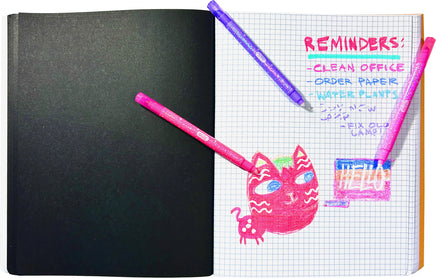 REMINDERS:
- CLEAN OFFICE
- ORDER PAPER
- WATER PLANTS
BUY NEW
LAMP
- FIX OLD
LAMP!
HELLO